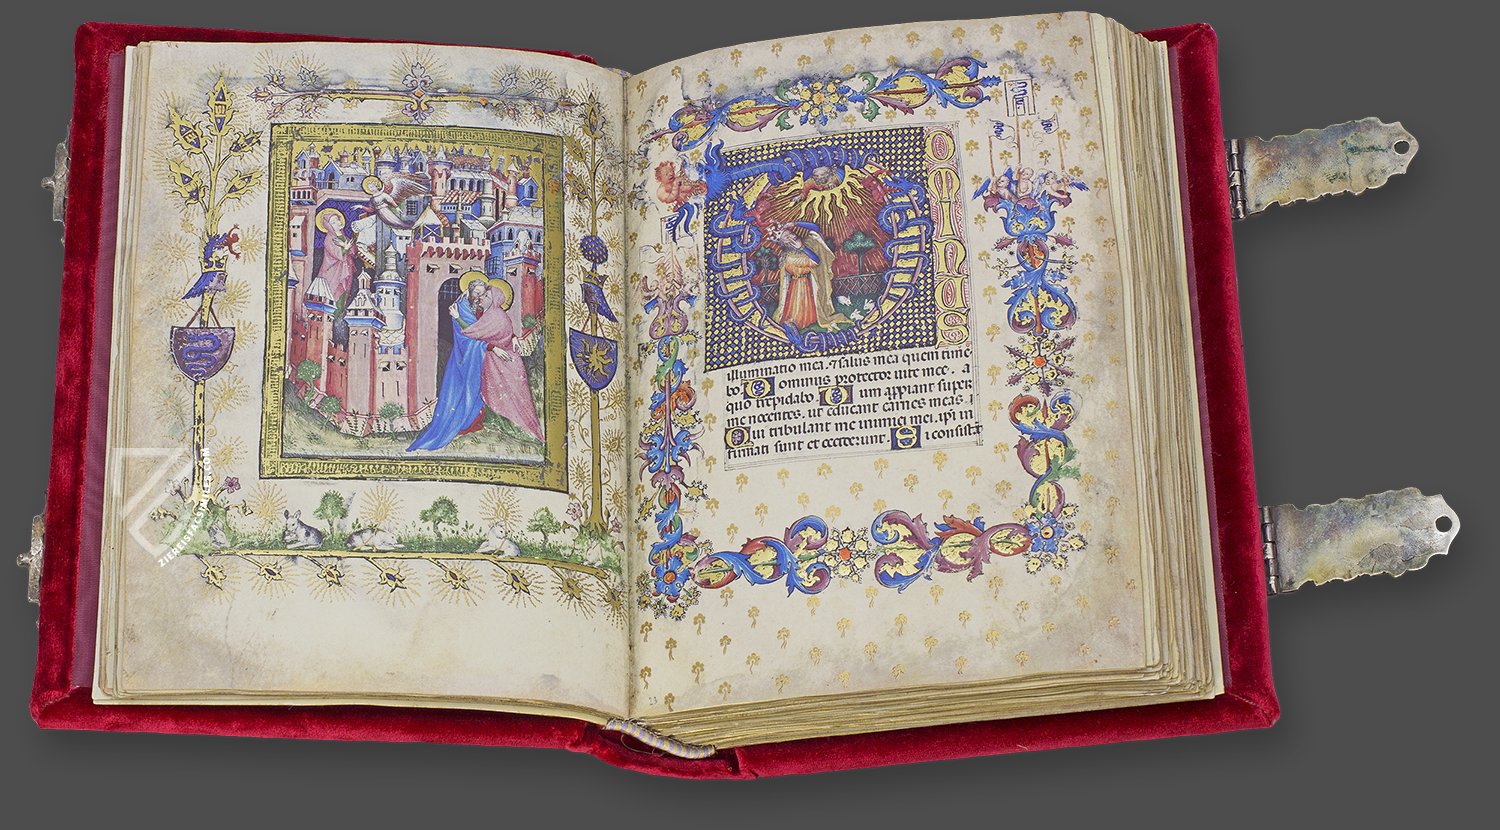 ZIEREISFACSIMILES.COM
OMINUS
illuminatio mea. ⁊ salus mea quem time
bo D ominus protector uite mee. a
quo trepidabo D um appiant super
me nocentes. ut edeant carnes meas.
Qui tribulant me inimici mei. ipi in
firmati sunt et ceciderunt. Si consist
23